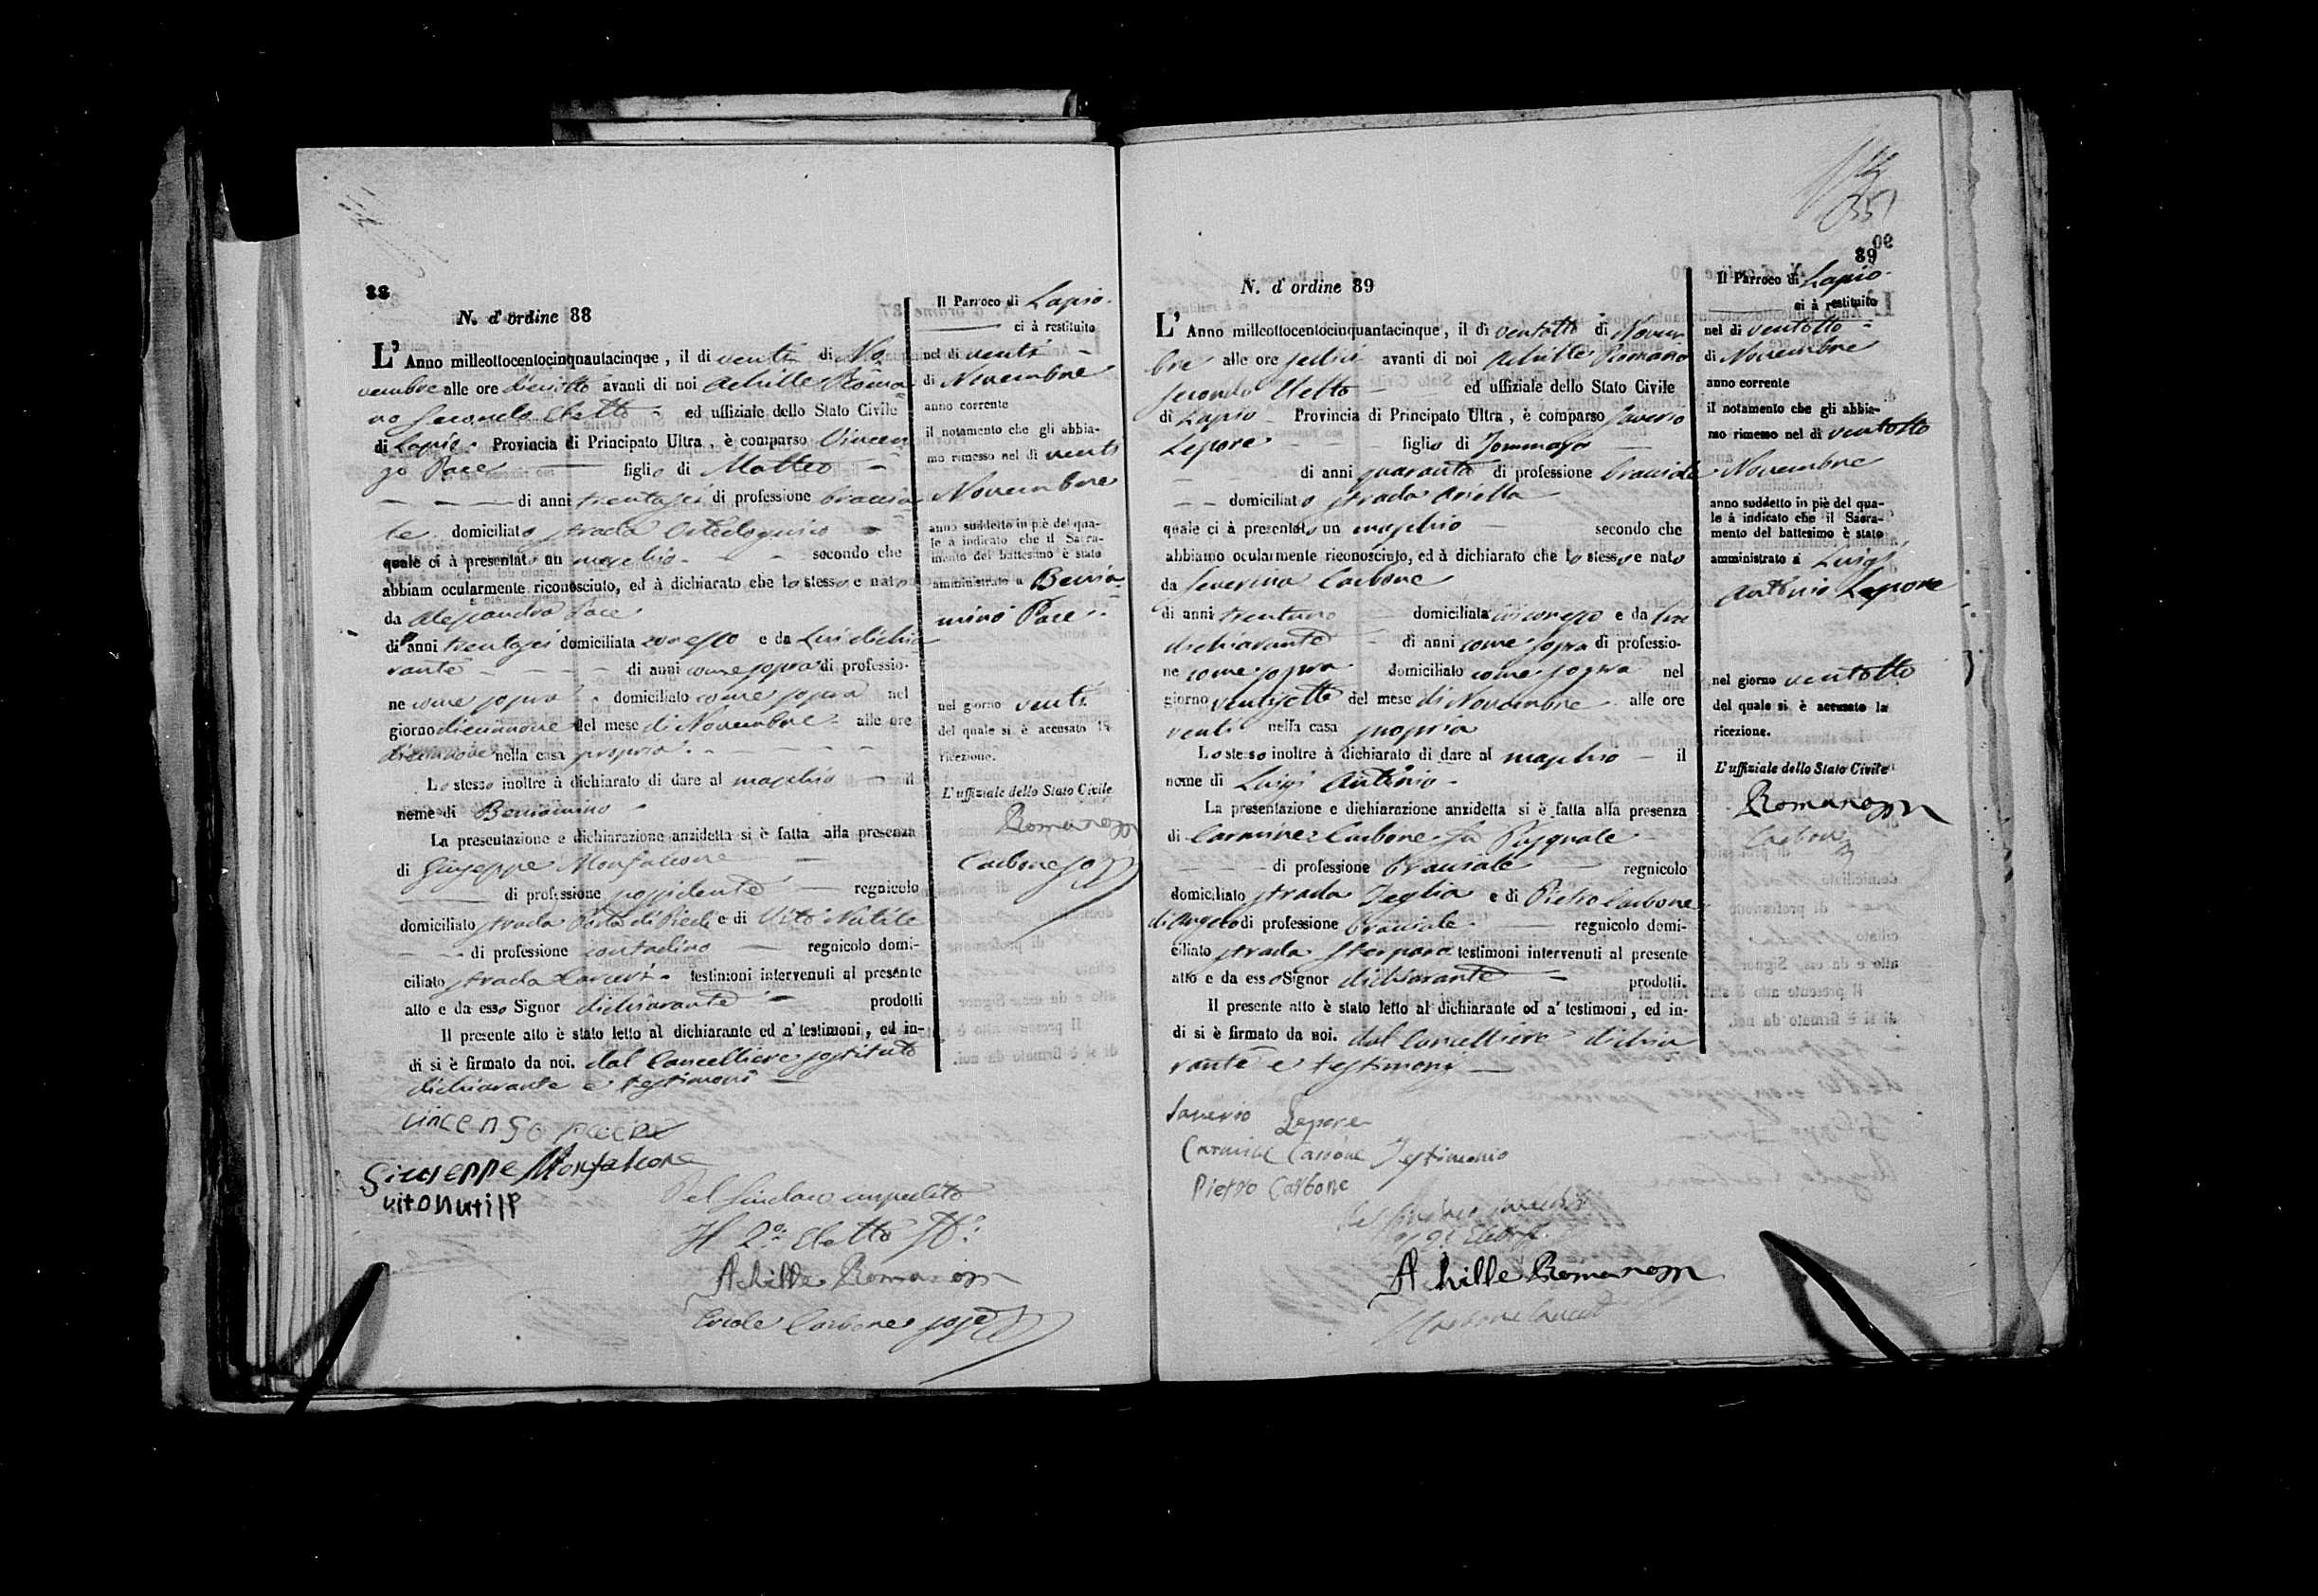 88
N. d'ordine 88
L'Anno milleottocentocinquantacinque, il di venti di No
vembre alle ore dieciotto avanti di noi Achille Roma
no Secondo Eletto ed uffiziale dello Stato Civile
di Lapio Provincia di Principato Ultra, è comparso Vincen
zo Pace figlio di Matteo
di anni trentasei di professione braccia
le domiciliato strada
quale ci à presentato un maschio secondo che
abbiam ocularmente riconosciuto, ed à dichiarato che lo stesso e nato
da Alessandra Pace
di anni trentasei domiciliata con esso e da lui dichia
rante di anni come sopra di professio-
ne come sopra domiciliato come sopra nel
giorno diecinnove del mese di Novembre alle ore
diecinnove nella casa propria.
Lo stesso inoltre à dichiarato di dare al maschio il
nome di Beniamino
La presentazione e dichiarazione anzidetta si è fatta alla presenza
di Giuseppe Monfalcone
di professione possidente regnicolo
domiciliato strada Porta di Piedi e di Vito Nutile
di professione contadino regnicolo domi-
ciliato strada testimoni intervenuti al presente
atto e da esso Signor dichiarante prodotti
Il presente atto è stato letto al dichiarante ed a' testimoni, ed in-
di si è firmato da noi. dal Cancelliere sostituto
dichiarante e testimoni
vincenzo pace
Giuseppe Monfalcone
vito nutile
Pel Sindaco impedito
Il 2º Eletto
Achille Romano
Ercole Carbone
Il Parroco di Lapio.
ci à restituito
nel di venti
di Novembre
anno corrente
il notamento che gli abbia-
mo rimesso nel dì venti
Novembre
anno suddetto in piè del qua-
le à indicato che il Sacra-
mento del battesimo è stato
amministrato a Benia
mino Pace
nel giorno venti
del quale si è accusato la
ricezione.
L'uffiziale dello Stato Civile
Romano
Carbone
89
N. d'ordine 89
L'Anno milleottocentocinquantacinque, il dì ventotto di Novem
bre alle ore sedici avanti di noi Achille Romano
secondo Eletto ed uffiziale dello Stato Civile
di Lapio Provincia di Principato Ultra, è comparso Saverio
Lepore figlio di Tommaso
di anni quaranta di professione bracciale
domiciliato strada Ariella
quale ci à presentato un maschio secondo che
abbiamo ocularmente riconosciuto, ed à dichiarato che lo stesso e nato
da Severina Carbone
di anni trentuno domiciliata con esso e da lui
dichiarante di anni come sopra di professio-
ne come sopra domiciliato come sopra nel
giorno ventisette del mese di Novembre alle ore
venti nella casa propria
Lo stesso inoltre à dichiarato di dare al maschio il
nome di Luigi Antonio
La presentazione e dichiarazione anzidetta si è fatta alla presenza
di Carmine Carbone fu Pasquale
di professione bracciale regnicolo
domiciliato strada Teglia e di Pietro Carbone
di Angelo di professione bracciale regnicolo domi-
ciliato strada testimoni intervenuti al presente
atto e da esso Signor dichiarante prodotti.
Il presente atto è stato letto al dichiarante ed a' testimoni, ed in-
di si è firmato da noi. dal Cancelliere dichia
rante e testimoni
Saverio Lepore
Carmine Carbone Testimonio
Pietro Carbone
Achille Romano
Il Parroco di Lapio
ci à restituito
nel di ventotto
di Novembre
anno corrente
il notamento che gli abbia-
mo rimesso nel dì ventotto
Novembre
anno suddetto in piè del qua-
le à indicato che il Sacra-
mento del battesimo è stato
amministrato a Luigi
Antonio Lepore
nel giorno ventotto
del quale si è accusato la
ricezione.
L'uffiziale dello Stato Civile
Romano
Carbone